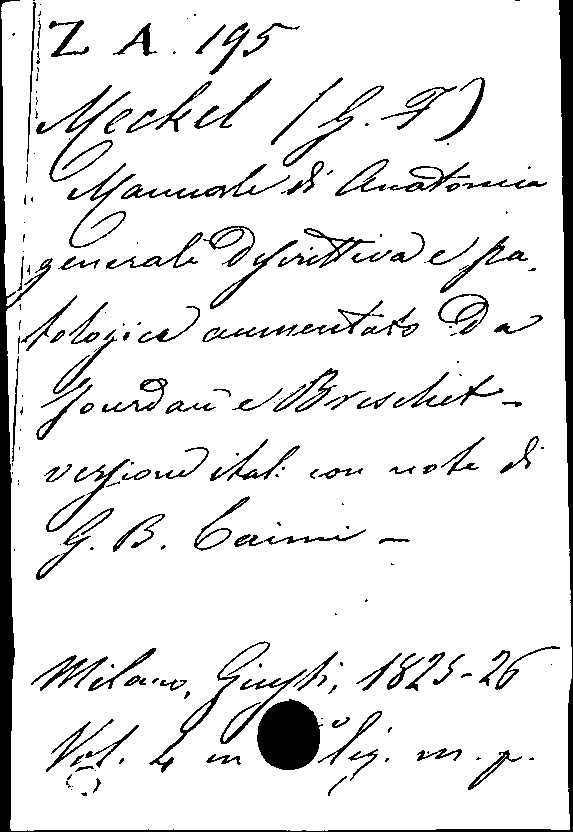 Z A. 195
Meckel (G. F)
Manuale di Anatomia
generale descrittiva e pa-
tologica aumentato Da
Jourdan e Breschet -
versione ital: con note di
G. B. Caimi -
Milano, Giusti, 1825-26
Vol. 4 in ° leg. m. p.